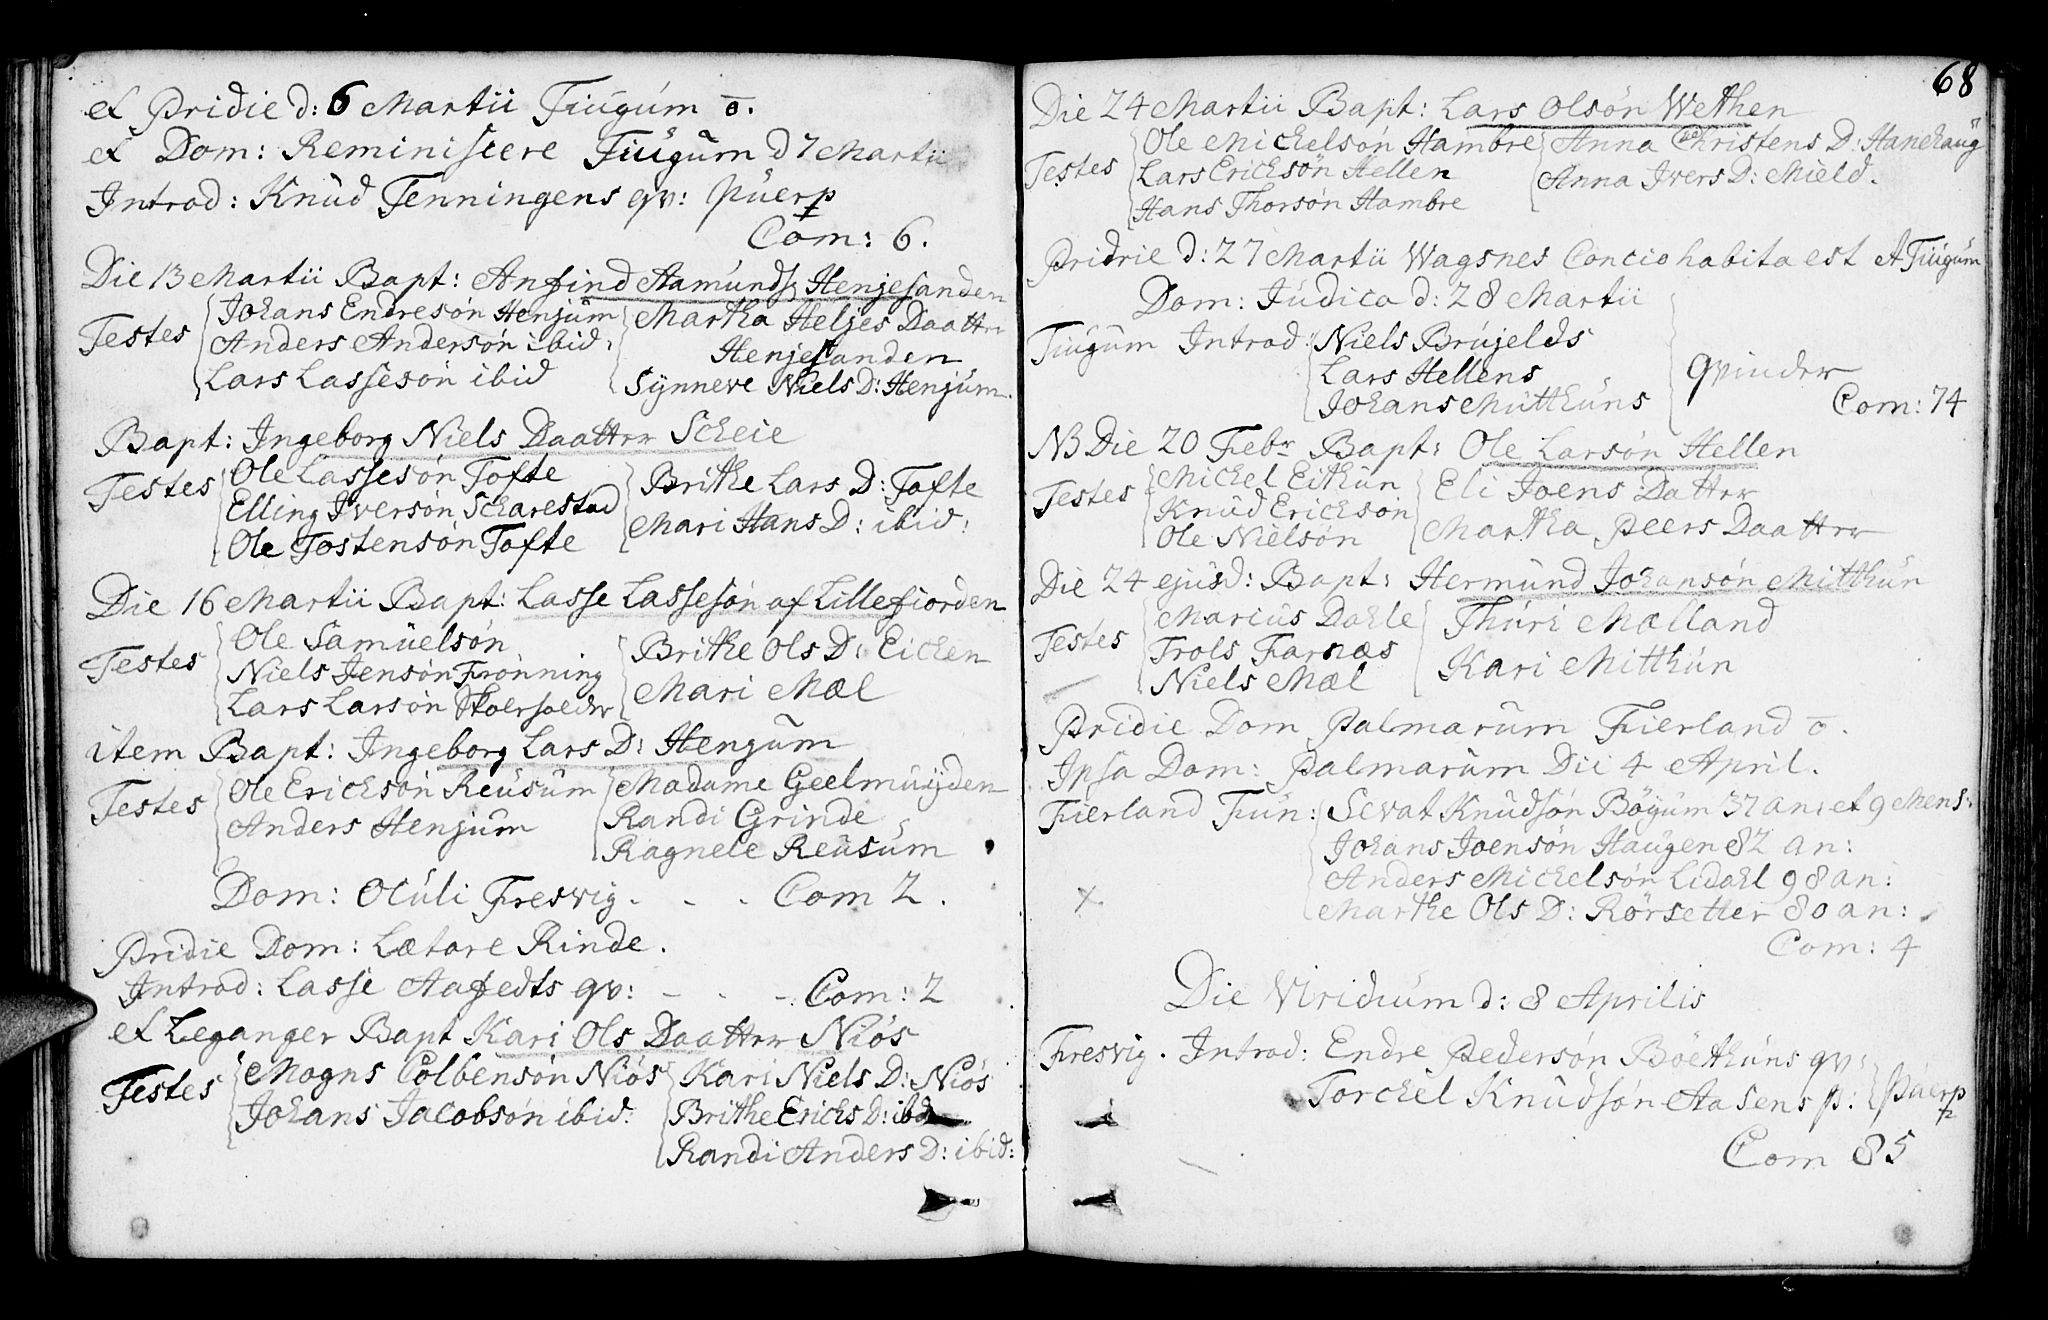 et Pridie d: 6 Martii Tiugum o.
et Dom: Reminiscere Tiugum d 7 Martii
Introd: Knud Tenningens qv: puerp
Com: 6.
Die 13 Martii Bapt: Anfind Aamunds Henjesanden
Testes
Johans Endresön Henjum
Anders Andersön ibid:
Lars Lassesön ibid
Martha Heljes Daatter
Henjesanden
Synneve Niels D: Henjum.
Bapt: Ingeborg Niels Daatter Scheie
Testes
Ole Lassesön Tofte
Elling Iversön Scharestad
Ole Tostensön Tofte
Brithe Lars D: Tofte
Mari Hans D: ibid:
Die 16 Martii Bapt: Lasse Lassesön af Lillefiorden
Testes
Ole Samuelsön
Niels Jensön Frönning
Lars Larsön
Brithe Ols D: Eichen
Mari Mæl
item Bapt: Ingeborg Lars D: Henjum
Testes
Ole Ericksön Reusum
Anders Henjum
Madame Geelmuyden
Randi Grinde
Ragnele Reusum
Dom: Oculi Fresvig . - . Com 2.
Pridie Dom: Lætare Rinde.
Introd: Lasse Aafedts qv: - . - . Com: 2
et Leganger Bapt Kari Ols Daatter Niös
Testes
Mogns Colbensön Niös
Johans Jacobsön ibid:
Kari Niels D: Niös
Brithe Ericks D: ibd
Randi Anders D: ibid:
68
Die 24 Martii Bapt: Lars Olsön Wethen
Testes
Ole Mickelsön Hambre
Lars Ericksön Hellen
Hans Thorsön Hambre
Anna Christens D: Hanehaug
Anna Ivers D: Mield.
Pridrie d: 27 Martii Wagsnes Concio habita est et Tiugum
Dom: Judica d: 28 Martii
Tiugum Introd:
Niels Brujelds
Lars Hellens
Johans Mitthuns
qvinder
Com: 74
NB Die 20 Febr Bapt: Ole Larsön Hellen
Testes
Mickel Eithun
Knud Erickson
Ole Nielsön
Eli Joens Datter
Martha Peers Daatter
Die 24 ejusd: Bapt: Hermund Johansön Mitthun
Testes
Marcus Dahle
Trols Farnæs
Niels Mæl
Thuri Mælland
Kari Mitthun
Pridie Dom Palmarum Fierland o.
Ipsa Dom: Palmarum Dii 4 April.
Fierland Fun:
Sevat Knudsön Böyum 37 an: et 9 Mens:
Johans Joensön Haugen 82 an:
Anders Mickelsön Lidahl 98 an:
Marthe Ols D: Rörsetter 80 an:
Com: 4
Die Viridium d: 8 Aprilis
Fresvig. Introd: Endre Pedersön Böethuns qv:
Torckel Knudsön Aasens p:
puerp
Com 85